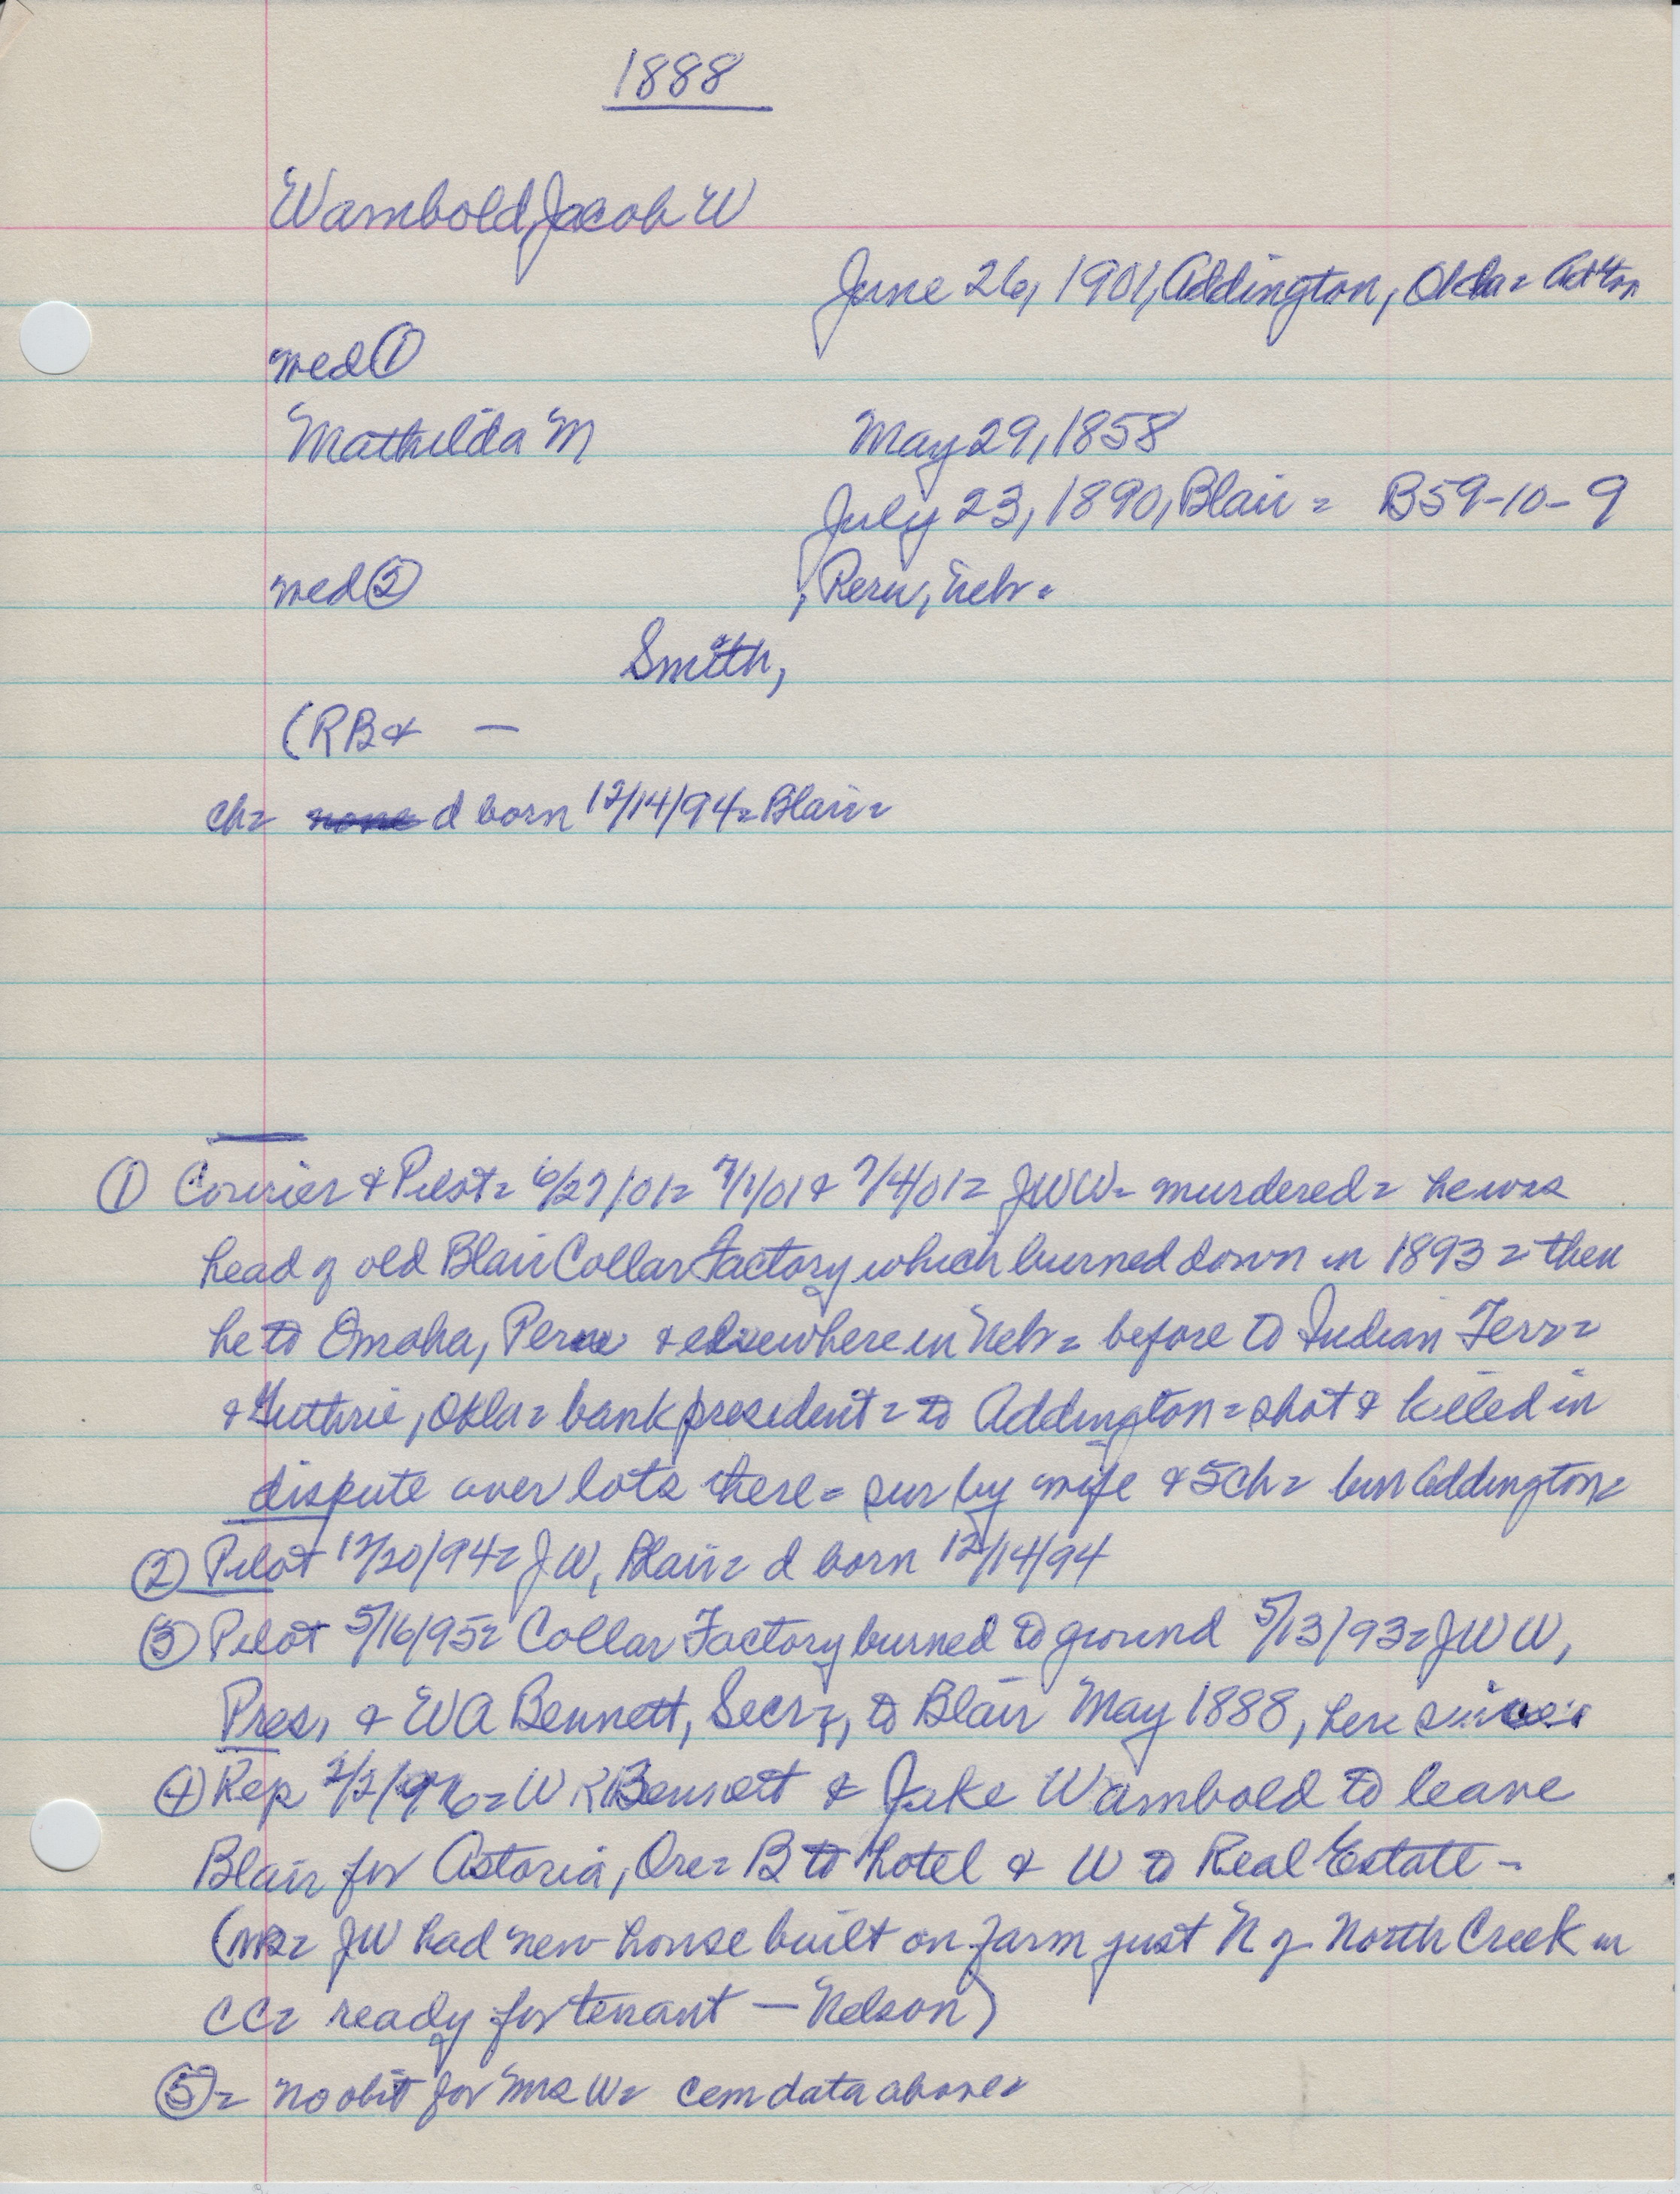 1888
Wambold, Jacob W
June 26, 1901, Addington, Okla =
med ①
Mathilda M May 29, 1858
July 23, 1890, Blair = B59-10-9
med ② , Peru, Neb =
Smith,
(RB & —
ch = none d born 12/14/94 = Blair =
① Courier & Pilot = 6/27/01 = 7/1/01 & 7/4/01 = JWW = murdered = he was
head of old Blair Collar Factory which burned down in 1893 = then
he to Omaha, Peru & elsewhere in Neb = before to Indian Terr =
& Guthrie, Okla = bank president = to Addington = shot & killed in
dispute over lots there = sur by wife & 5 ch = bur Addington =
② Pilot 12/20/94 = JW, Blair = d born 12/14/94
③ Pilot 5/16/95 = Collar Factory burned to ground 5/13/93 = JWW,
Pres, & WA Bennett, Secr =, to Blair May 1888, here since =
④ Rep = W R Bennett & Jake Wambold to leave
Blair for Astoria, Ore = B to hotel & W to Real Estate =
( = JW had new house built on farm just N of North Creek in
CC = ready for tenant — Nelson)
⑤ = no obit for Mrs W = cem data above =